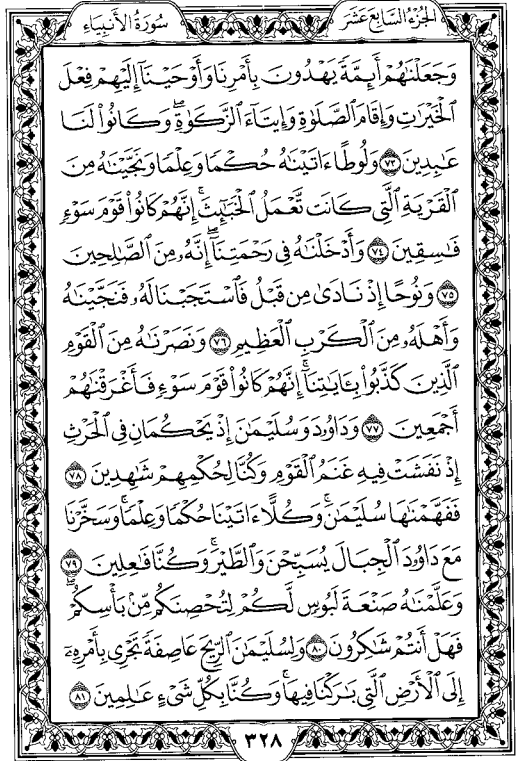 الجزء السابع عشر
سورة الأنبياء
وَجَعَلْنَٰهُمْ أَئِمَّةً يَهْدُونَ بِأَمْرِنَا وَأَوْحَيْنَآ إِلَيْهِمْ فِعْلَ
ٱلْخَيْرَٰتِ وَإِقَامَ ٱلصَّلَوٰةِ وَإِيتَآءَ ٱلزَّكَوٰةِۖ وَكَانُوا۟ لَنَا
عَٰبِدِينَ ٧٣ وَلُوطًا ءَاتَيْنَٰهُ حُكْمًا وَعِلْمًا وَنَجَّيْنَٰهُ مِنَ
ٱلْقَرْيَةِ ٱلَّتِى كَانَت تَّعْمَلُ ٱلْخَبَٰٓئِثَۗ إِنَّهُمْ كَانُوا۟ قَوْمَ سَوْءٍ
فَٰسِقِينَ ٧٤ وَأَدْخَلْنَٰهُ فِى رَحْمَتِنَآۖ إِنَّهُۥ مِنَ ٱلصَّٰلِحِينَ
٧٥ وَنُوحًا إِذْ نَادَىٰ مِن قَبْلُ فَٱسْتَجَبْنَا لَهُۥ فَنَجَّيْنَٰهُ
وَأَهْلَهُۥ مِنَ ٱلْكَرْبِ ٱلْعَظِيمِ ٧٦ وَنَصَرْنَٰهُ مِنَ ٱلْقَوْمِ
ٱلَّذِينَ كَذَّبُوا۟ بِـَٔايَٰتِنَآۚ إِنَّهُمْ كَانُوا۟ قَوْمَ سَوْءٍ فَأَغْرَقْنَٰهُمْ
أَجْمَعِينَ ٧٧ وَدَاوُۥدَ وَسُلَيْمَٰنَ إِذْ يَحْكُمَانِ فِى ٱلْحَرْثِ
إِذْ نَفَشَتْ فِيهِ غَنَمُ ٱلْقَوْمِ وَكُنَّا لِحُكْمِهِمْ شَٰهِدِينَ ٧٨
فَفَهَّمْنَٰهَا سُلَيْمَٰنَۚ وَكُلًّا ءَاتَيْنَا حُكْمًا وَعِلْمًاۚ وَسَخَّرْنَا
مَعَ دَاوُۥدَ ٱلْجِبَالَ يُسَبِّحْنَ وَٱلطَّيْرَۚ وَكُنَّا فَٰعِلِينَ ٧٩
وَعَلَّمْنَٰهُ صَنْعَةَ لَبُوسٍ لَّكُمْ لِتُحْصِنَكُم مِّنۢ بَأْسِكُمْۖ
فَهَلْ أَنتُمْ شَٰكِرُونَ ٨٠ وَلِسُلَيْمَٰنَ ٱلرِّيحَ عَاصِفَةً تَجْرِى بِأَمْرِهِۦٓ
إِلَى ٱلْأَرْضِ ٱلَّتِى بَٰرَكْنَا فِيهَاۚ وَكُنَّا بِكُلِّ شَىْءٍ عَٰلِمِينَ ٨١
٣٢٨